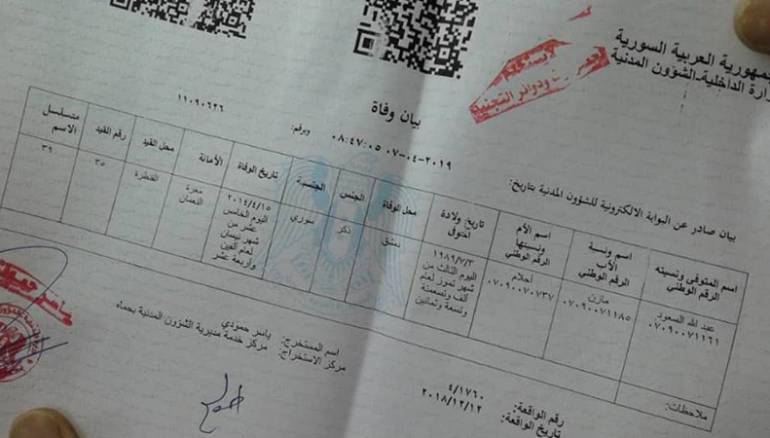 الجمهورية العربية السورية
وزارة الداخلية-الشؤون المدنية
ودوائر التجنيد
بيان وفاة
بيان صادر عن البوابة الالكترونية للشؤون المدنية بتاريخ: ٢٠١٩-٠٤-٠٧ ٠٨:٤٧:٠٥ وبرقم: ١١٠٩٠٦٢٦
اسم المتوفى ونسبته الرقم الوطني
اسم ونسبة الأب الرقم الوطني
اسم الأم ونسبتها الرقم الوطني
تاريخ ولادة المتوفى
محل الوفاة
الجنس
الجنسية
تاريخ الوفاة
الأمانة
محل القيد
رقم القيد
متسلسل الاسم
عبد الله السعود ٠٧٠٩٠٠٧١١٦١
مازن ٠٧٠٩٠٠٧١١٨٥
احلام ٠٧٠٩٠٠٧٠٧٣٧
١٩٨٩/٧/٣ اليوم الثالث من شهر تموز لعام ألف وتسعمئة وتسعة وثمانين
دمشق
ذكر
سوري
٢٠١٤/٤/١٥ اليوم الخامس عشر من شهر نيسان لعام ألفين وأربعة عشر
معرة النعمان
القطرة
٣٥
٣٩
ملاحظات:
رقم الواقعة: ٤/١٧٦٠
تاريخ الواقعة: ٢٠١٨/١٢/١٢
اسم المستخرج: ياسر حمودي
مركز الاستخراج: مركز خدمة مديرية الشؤون المدنية بحماه